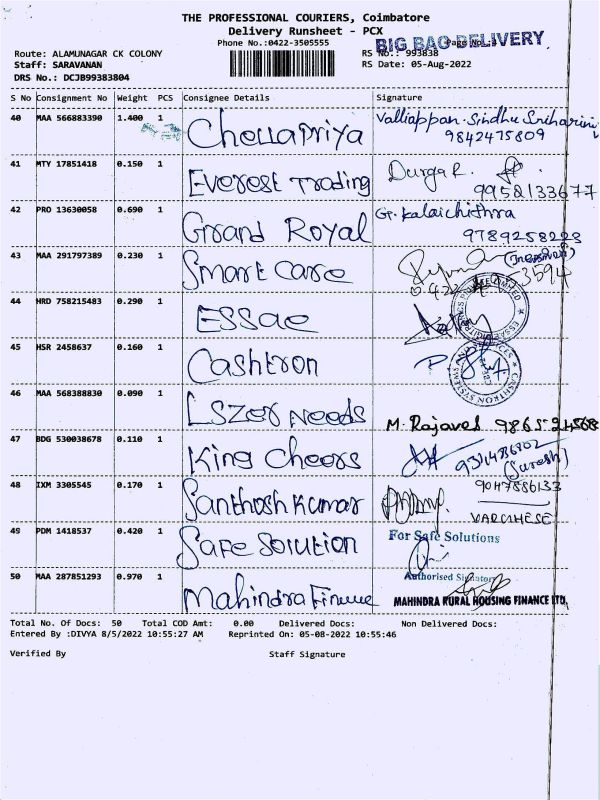 THE PROFESSIONAL COURIERS, Coimbatore
Delivery Runsheet - PCX
Phone No.:0422-3505555
BIG BAG DELIVERY
Page No.:
Route: ALAMUNAGAR CK COLONY
RS No.: 993838
Staff: SARAVANAN
RS Date: 05-Aug-2022
DRS No.: DCJB99383804
S No Consignment No Weight PCS Consignee Details Signature
40 MAA 566883390 1.400 1 Chellapriya Valliappan. Sindhu Sriharini
9842475809
41 MTY 17851418 0.150 1 Everest Trading Durga R.
9952133677
42 PRO 13630058 0.690 1 Grand Royal G. Kalaichithra
9789258223
43 MAA 291797389 0.230 1 Smart Care
44 HRD 758215483 0.290 1 ESSae
45 HSR 2458637 0.160 1 Cashtron
46 MAA 568388830 0.090 1 Needs M. Rajavel
47 BDG 530038678 0.110 1 King Cheers
(Suresh)
48 IXM 3305545 0.170 1 Santhosh Kumar 9047886133
VARGHESE
49 PDM 1418537 0.420 1 Safe Solution For Safe Solutions
Authorised Signatory
50 MAA 287851293 0.970 1 Mahindra Finance
MAHINDRA RURAL HOUSING FINANCE LTD.
Total No. Of Docs: 50 Total COD Amt: 0.00 Delivered Docs: Non Delivered Docs:
Entered By :DIVYA 8/5/2022 10:55:27 AM Reprinted On: 05-08-2022 10:55:46
Verified By Staff Signature